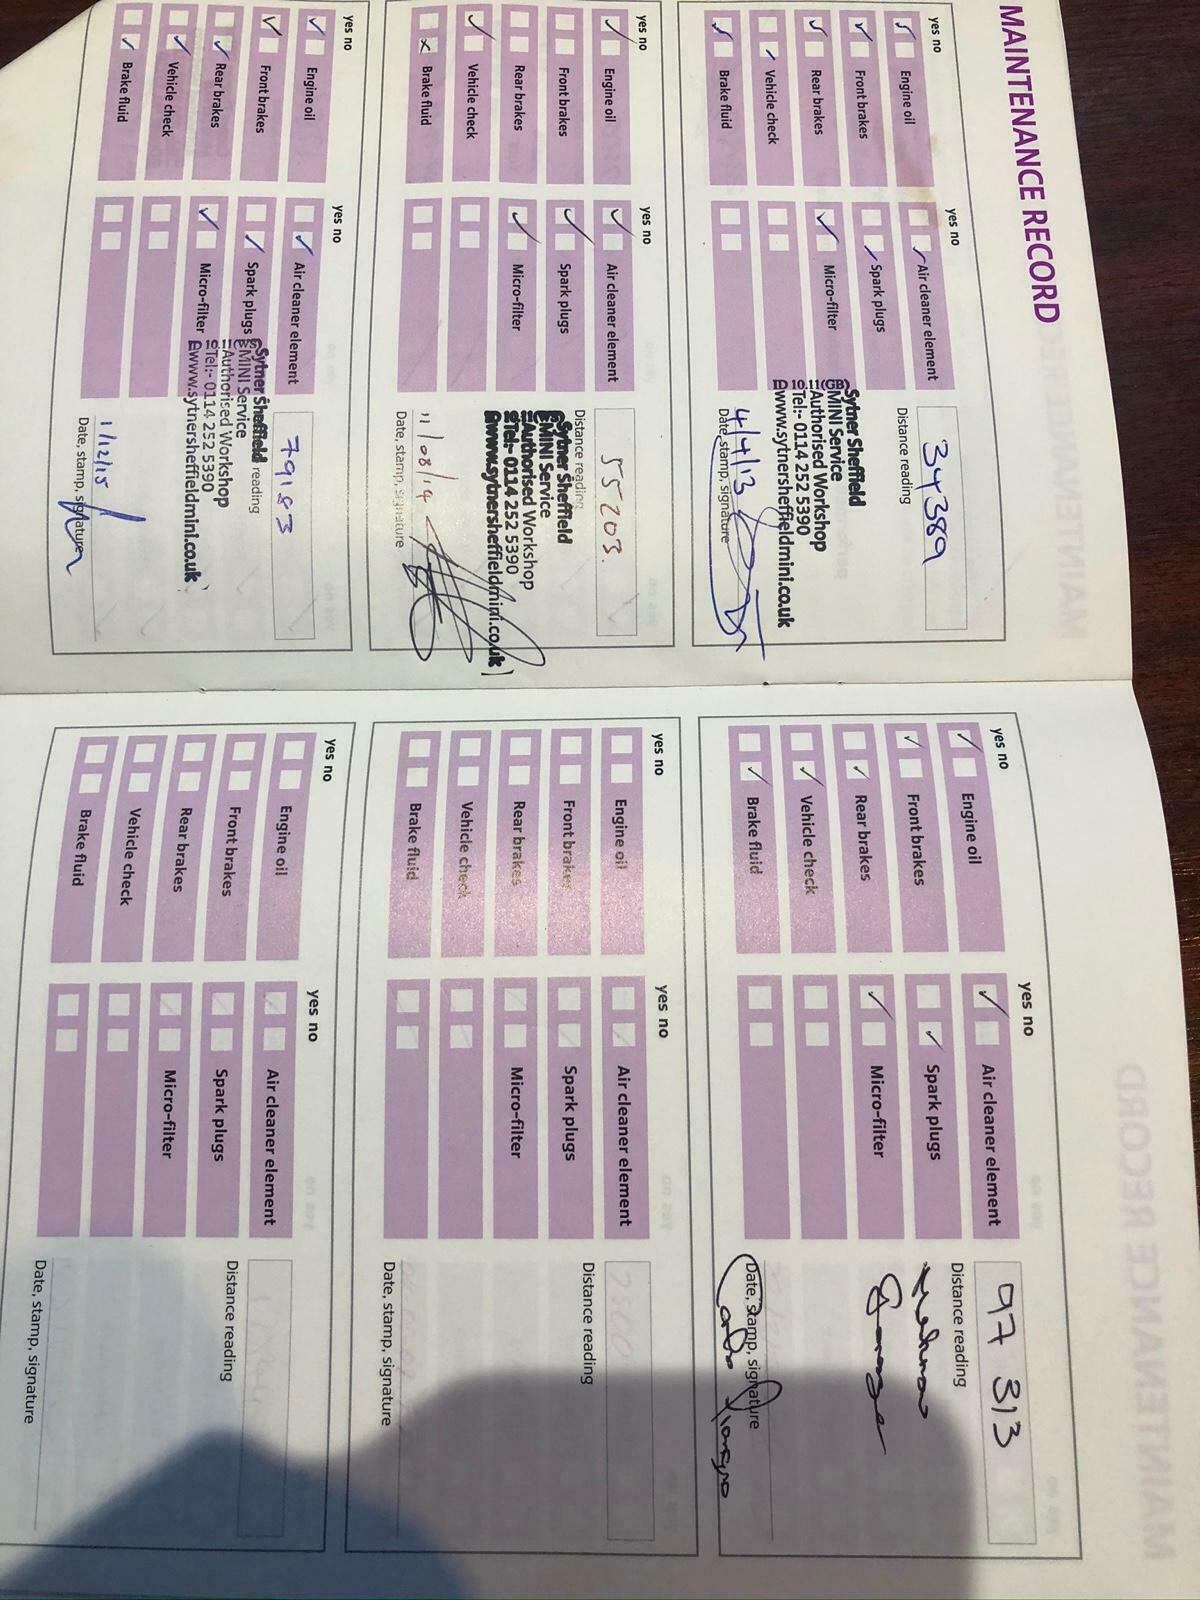 MAINTENANCE RECORD
yes no
Engine oil
Front brakes
Rear brakes
Vehicle check
Brake fluid
yes no
Air cleaner element
Spark plugs
Micro-filter
34389
Distance reading
Sytner Sheffield
MINI Service
Authorised Workshop
Tel:- 0114 252 5390
www.sytnersheffieldmini.co.uk
4/4/13
Date, stamp, signature
yes no
Engine oil
Front brakes
Rear brakes
Vehicle check
Brake fluid
yes no
Air cleaner element
Spark plugs
Micro-filter
55203.
Distance reading
Sytner Sheffield
MINI Service
Authorised Workshop
Tel:- 0114 252 5390
www.sytnersheffieldmini.co.uk
11/08/14
Date, stamp, signature
yes no
Engine oil
Front brakes
Rear brakes
Vehicle check
Brake fluid
yes no
Air cleaner element
Spark plugs
Micro-filter
79183
Distance reading
Sytner Sheffield
MINI Service
Authorised Workshop
Tel:- 0114 252 5390
www.sytnersheffieldmini.co.uk
1/12/15
Date, stamp, signature
yes no
Engine oil
Front brakes
Rear brakes
Vehicle check
Brake fluid
yes no
Air cleaner element
Spark plugs
Micro-filter
97 313
Distance reading
Garage
Date, stamp, signature
yes no
Engine oil
Front brakes
Rear brakes
Vehicle check
Brake fluid
yes no
Air cleaner element
Spark plugs
Micro-filter
Distance reading
Date, stamp, signature
yes no
Engine oil
Front brakes
Rear brakes
Vehicle check
Brake fluid
yes no
Air cleaner element
Spark plugs
Micro-filter
Distance reading
Date, stamp, signature